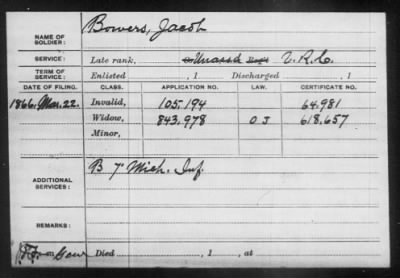 NAME OF SOLDIER: Bowers, Jacob
SERVICE: Late rank, Unassd V.R.C.
TERM OF SERVICE: Enlisted , 1 Discharged , 1
DATE OF FILING. CLASS. APPLICATION NO. LAW. CERTIFICATE NO.
1866 Mar. 22. Invalid, 105,194 64,981
Widow, 843,978 O J 618,657
Minor,
ADDITIONAL SERVICES: B 7" Mich. Inf.
REMARKS:
Died , 1 , at